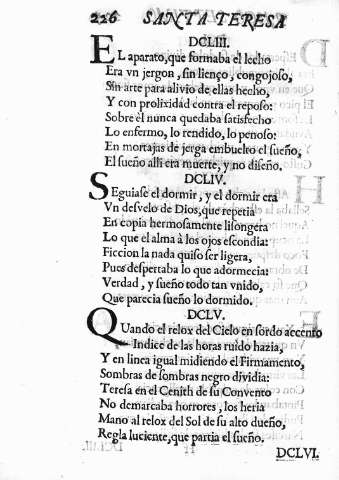 226 SANTA TERESA
DCLIII.
EL aparato, que formaba el lecho
Era vn jergon, sin lienço, congojoso,
Sin arte para alivio de ellas hecho,
Y con prolixidad contra el reposo:
Sobre èl nunca quedaba satisfecho
Lo enfermo, lo rendido, lo penoso:
En mortajas de jerga embuelto el sueño,
El sueño alli era muerte, y no diseño.
DCLIV.
SEguiase el dormir, y el dormir era
Vn desvelo de Dios, que repetia
En copia hermosamente lisongera
Lo que el alma à los ojos escondia:
Ficcion la nada quiso ser ligera,
Pues despertaba lo que adormecia:
Verdad, y sueño todo tan vnido,
Que parecia sueño lo dormido.
DCLV.
QUando el relox del Cielo en sordo accento
Indice de las horas ruido hazia,
Y en linea igual midiendo el Firmamento,
Sombras de sombras negro dividia:
Teresa en el Cenith de su Convento
No demarcaba horrores, los heria
Mano al relox del Sol de su alto dueño,
Regla luciente, que partia el sueño.
DCLVI.